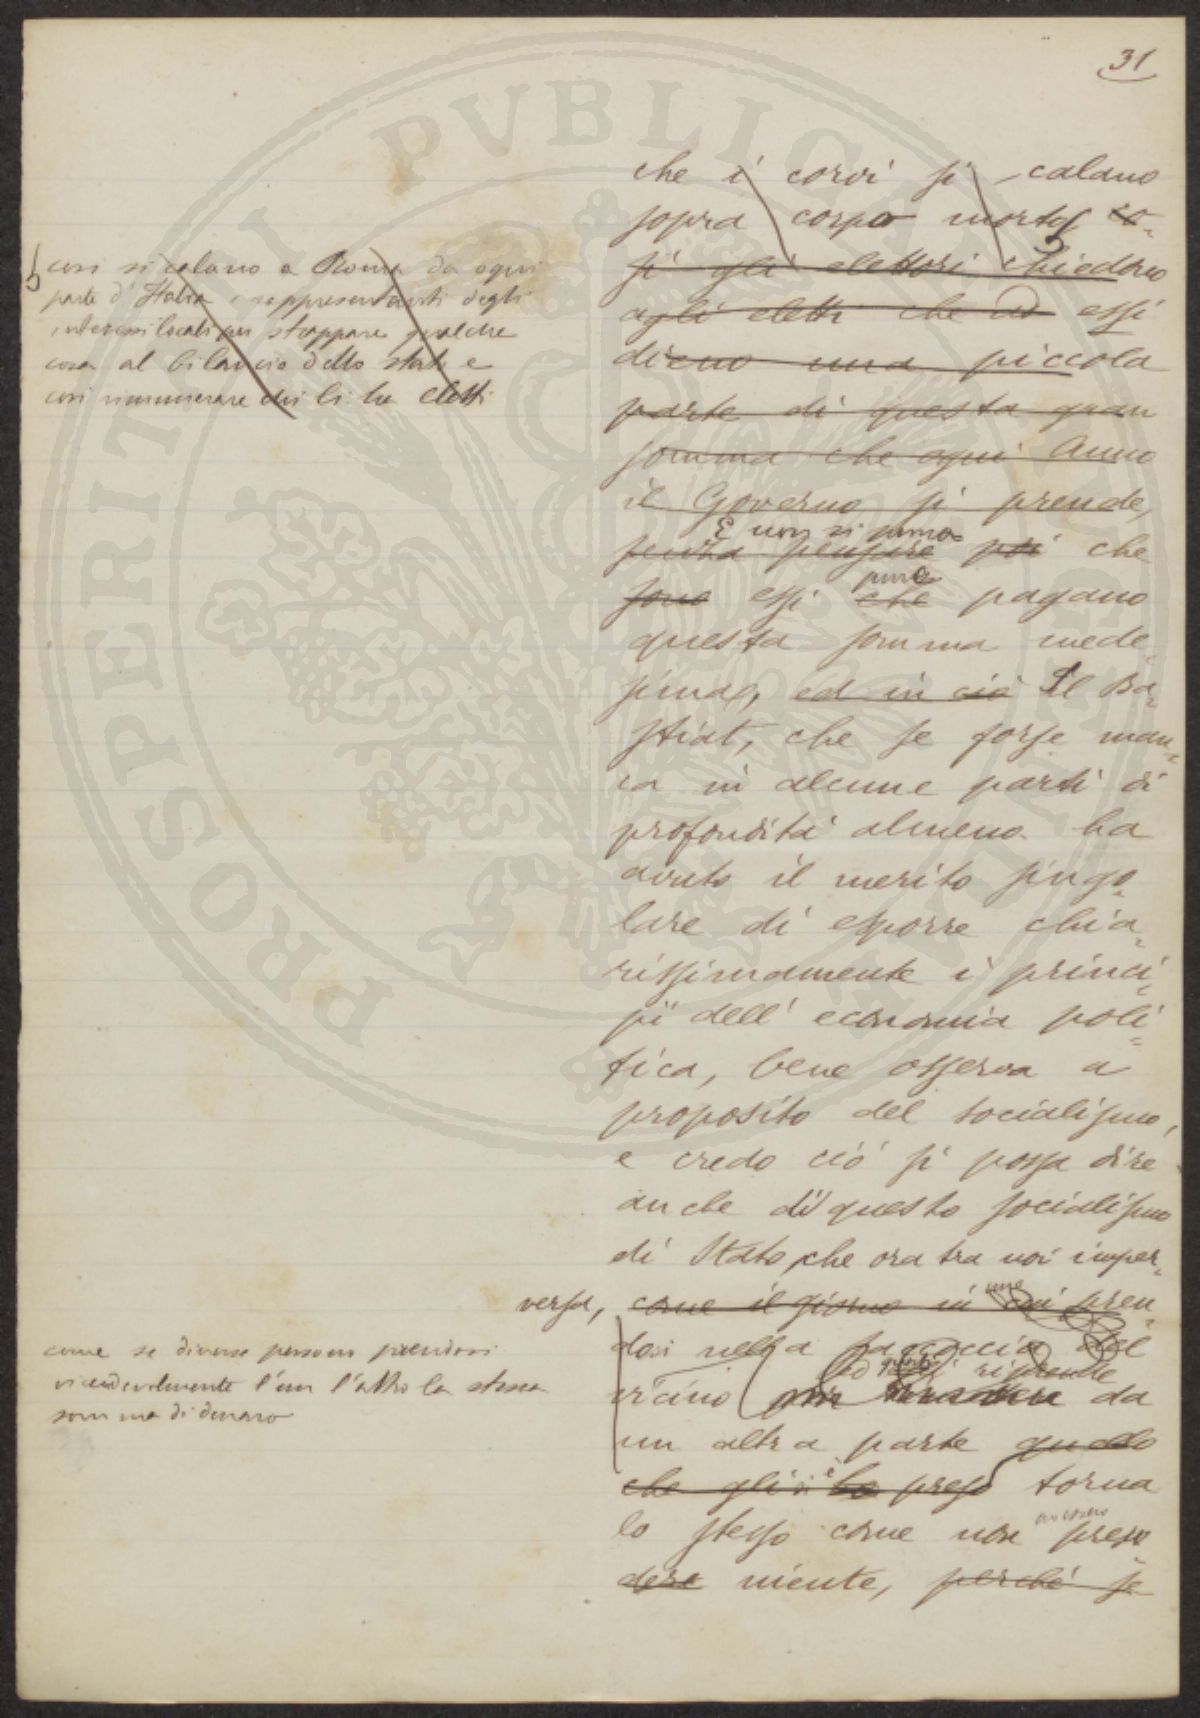 31
che i corvi si calano
sopra corpo morto co-
si gli elettori chiedono
agli eletti che ad essi
dieno una piccola
parte di questa gran
somma che ogni Anno
il Governo si prende,
E non si pensa
senza pensare poi che
pure
sono essi che pagano
questa somma mede=
sima, ed in ciò Il Ba=
stiat, che se forse man=
ca in alcune parti di
profondità almeno ha
avuto il merito singo=
lare di esporre chia=
rissimamente i princi=
pii dell' economia poli=
tica, bene osserva a
proposito del socialismo,
e credo ciò si possa dire
anche di questo socialismo
di Stato, che ora tra noi imper=
versa, come il giorno in cui pren=
dosi nella saccoccia del
riprende
vicino da
un altra parte quello
che gli si è ha preso torna
lo stesso come non avessero preso
dere niente, perché se
così si calano a Roma da ogni
parte d'Italia i rappresentanti degli
interessi locali per strappare qualche
cosa al bilancio dello stato e
così rimunerare chi li ha eletti
come se diverse persone prendosi
vicendevolmente l'un l'altro la stessa
somma di denaro
PROSPERITATI PVBLICAE